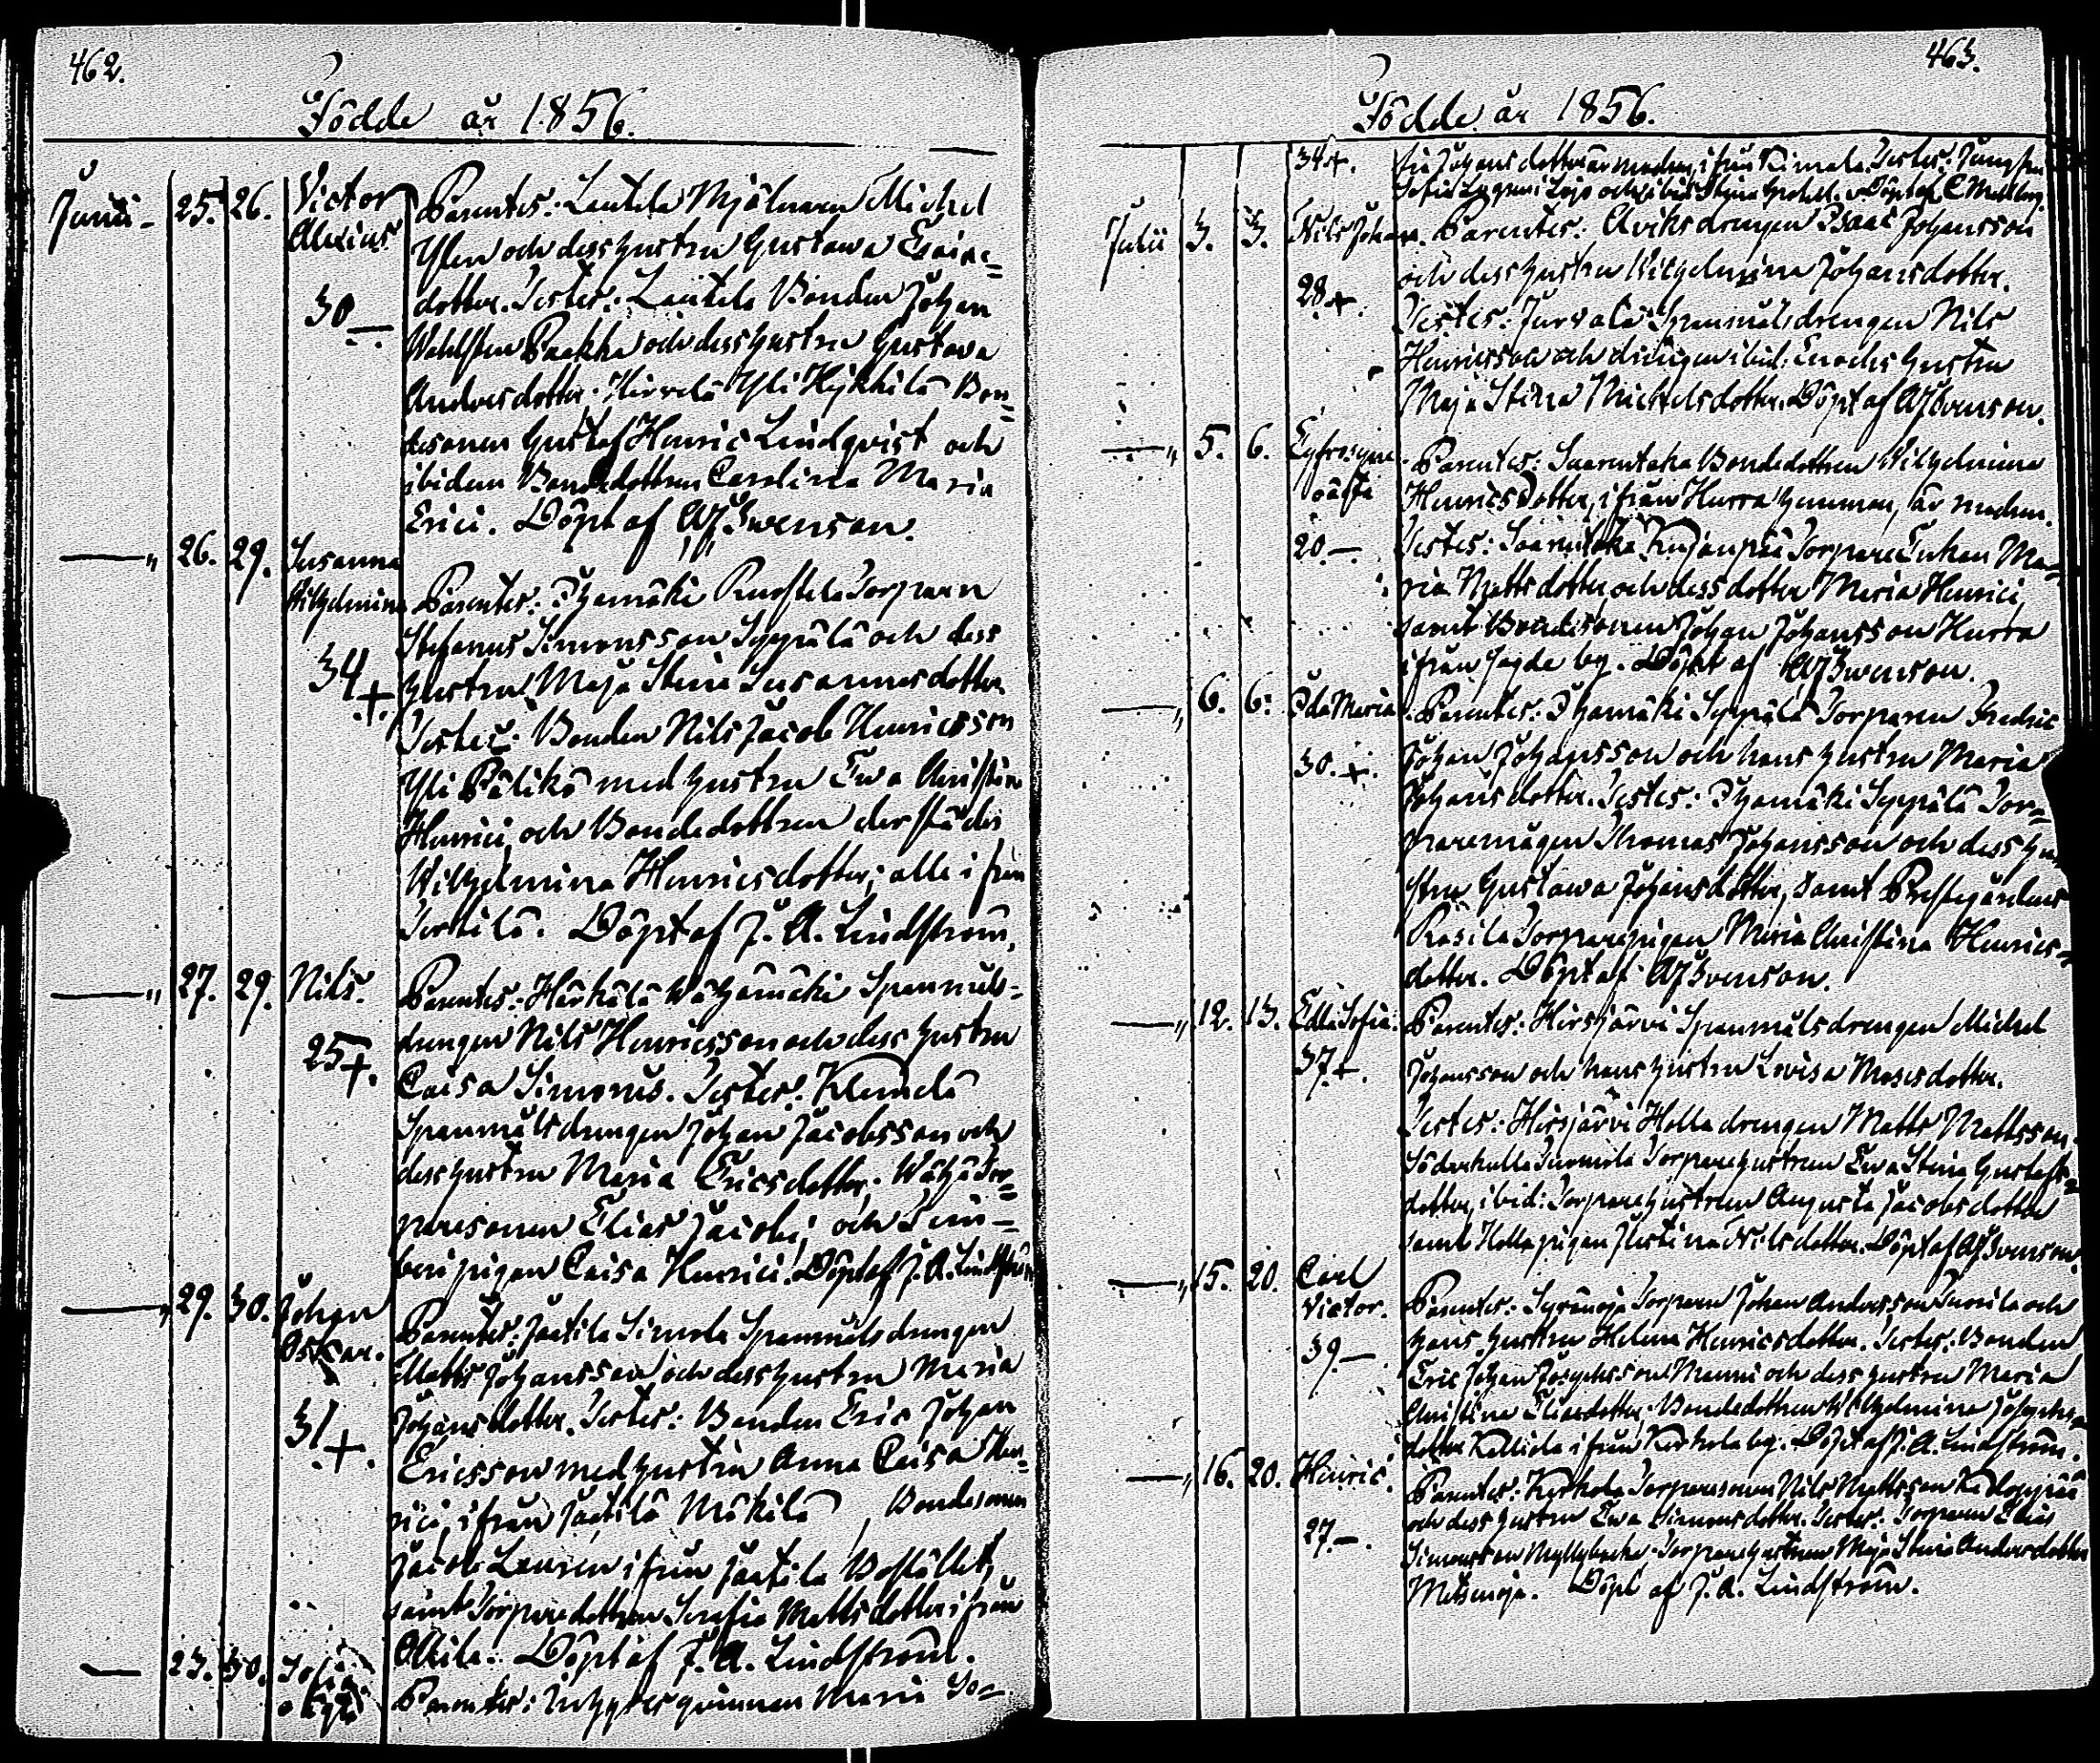 462.
Födde år 1856.
Junii 25. 26. Victor Parentes: Lautela Mjölnaren Michel
Alexius och dess hustru Gustawa Esaias=
30 — dotter. Testes: Lautela Bonden Johan
Wahlsten Paakka och dess hustru Gustava
Andersdotter. Hirvelä Yli Hykkilä Bon=
desonen Gustaf Henric Lindqvist och
ibidem Bondedottren Carolina Maria
Erici. Döpt af AJ Swenson.
—„ 26. 29. Susanna
Wilhelmina Parentes: Ihamäki Torparen
Stefanus Simonsson Seppälä och dess
34 + hustru Maja Stina Susannasdotter.
Testes: Bonden Nils Jacob Henricsson
Yli med hustru Ewa Christina
Henrici, och Bondedottren derstädes
Wilhelmina Henricsdotter; alle ifrån
Terttilä. Döpt af J. A. Lindström.
—„ 27. 29. Nils. Parentes: Härkälä Wähämäki Spanmåls=
drengen Nils Henricsson och dess hustru
25 +. Caisa Simonis. Testes: Klemelä
Spanmålsdrengen Johan Jacobsson och
dess hustru Maria Ericsdotter; Wähä Tor=
paresonen Elias Jacobi; och
pigan Caisa Henrici. Döpt af J. A. Lindström
—„ 29. 30. Johan
Oskar. Parentes: Jaatila Simola Spanmålsdrengen
Matts Johansson och dess hustru Maria
31 +. Johansdotter. Testes: Bonden Eric Johan
Ericsson med hustru Anna Caisa Hen=
rici, ifrån Jaatila Mäkilä, Bondesonen
Jacob Lauren ifrån Jaatila Bostället,
samt Torparedottren Serafia Mattsdotter ifrån
Ollila. Döpt af J. A. Lindström.
— 23. 30. Sofia
Parentes: Inhyses qvinnan Maria So=
463.
Födde år 1856.
34 +. fia Johansdotter är modren, ifrån Kimala. Testes: Jungfru
Sofia i Lojo och ibid: Stina Döpt af C Mellberg.
Julii 3. 3. Nils Johan. Parentes: Arviksdrengen Isaac Johansson
och dess hustru Wilhelmina Johansdotter.
28 +. Testes: Jurvala Spanmålsdrengen Nils
Henricsson och drängen ibid: Enochs hustru
Maja Stina Michelsdotter. Döpt af AJ Swenson.
—„ 5. 6. Eufrosyne Parentes: Saarentaka Bondedottren Wilhelmina
oäkta Henricsdotter, ifrån Hurra hemman, är modren.
20 — Testes: Saarentaka Kujanpää Torpare Enkan Ma=
ria Mattsdotter och dess dotter Maria Henrici,
samt Bondesonen Johan Johansson Hurra
ifrån sagde by. Döpt af AJ Swenson.
—„ 6. 6. Ida Maria. Parentes: Ihamäki Seppälä Torparen Fredric
30. +. Johan Johansson och hans hustru Maria
Johansdotter. Testes: Ihamäki Seppälä Tor=
paremågen Thomas Johansson och dess hu=
stru Gustawa Johansdotter, samt Prestegårdens
Rasila Torparepigan Maria Christina Henrics=
dotter. Döpt af AJ Swenson.
—„ 12. 13. Edla Sofia. Parentes: Hirsjärvi Spanmålsdrengen Michel
37 +. Johansson och hans hustru Lovisa Mosisdotter.
Testes: Hirsjärvi Holla drengen Matts Mattsson.
Söderkulla Torparehustrun Ewa Stina Gustafs=
dotter, ibid: Torparehustrun Augusta Jacobsdotter
samt Holla pigan Justina Nilsdotter. Döpt af AJ Swenson.
—„ 15. 20. Carl
Victor. Parentes: Syvänoja Torparen Johan Andersson och
39 —. hans hustru Helena Henricsdotter. Testes: Bonden
Eric Johan Josephsson Manni och dess hustru Maria
Christina Eliaedotter; Bondedottren Wilhelmina Josephs=
dotter ifrån Kerkola by. Döpt af J. A. Lindström.
—„ 16. 20. Henric. Parentes: Kerkola Torparesonen Nils Mattsson
27. —. och dess hustru Ewa Simonsdotter. Testes: Torparen Elias
Simonsson Myllybacka. Torparehustrun Maja Stina Andersdotter
Metsänoja. Döpt af J. A. Lindström.